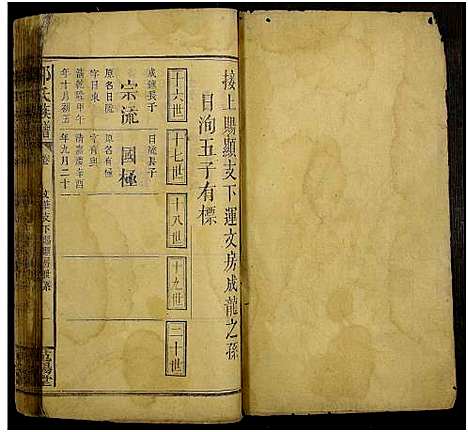 接上賜顯支下運文房成龍之孫
日洵五子有標
十六世
十七世
十八世
十九世
二十世
成龍長子
宗流
原名日流
字日東
清乾隆甲午
年十月初五
日流長子
國極
原名有極
字有典
清嘉慶辛酉
年九月二十
氏族譜
卷
支下賜顯房世系